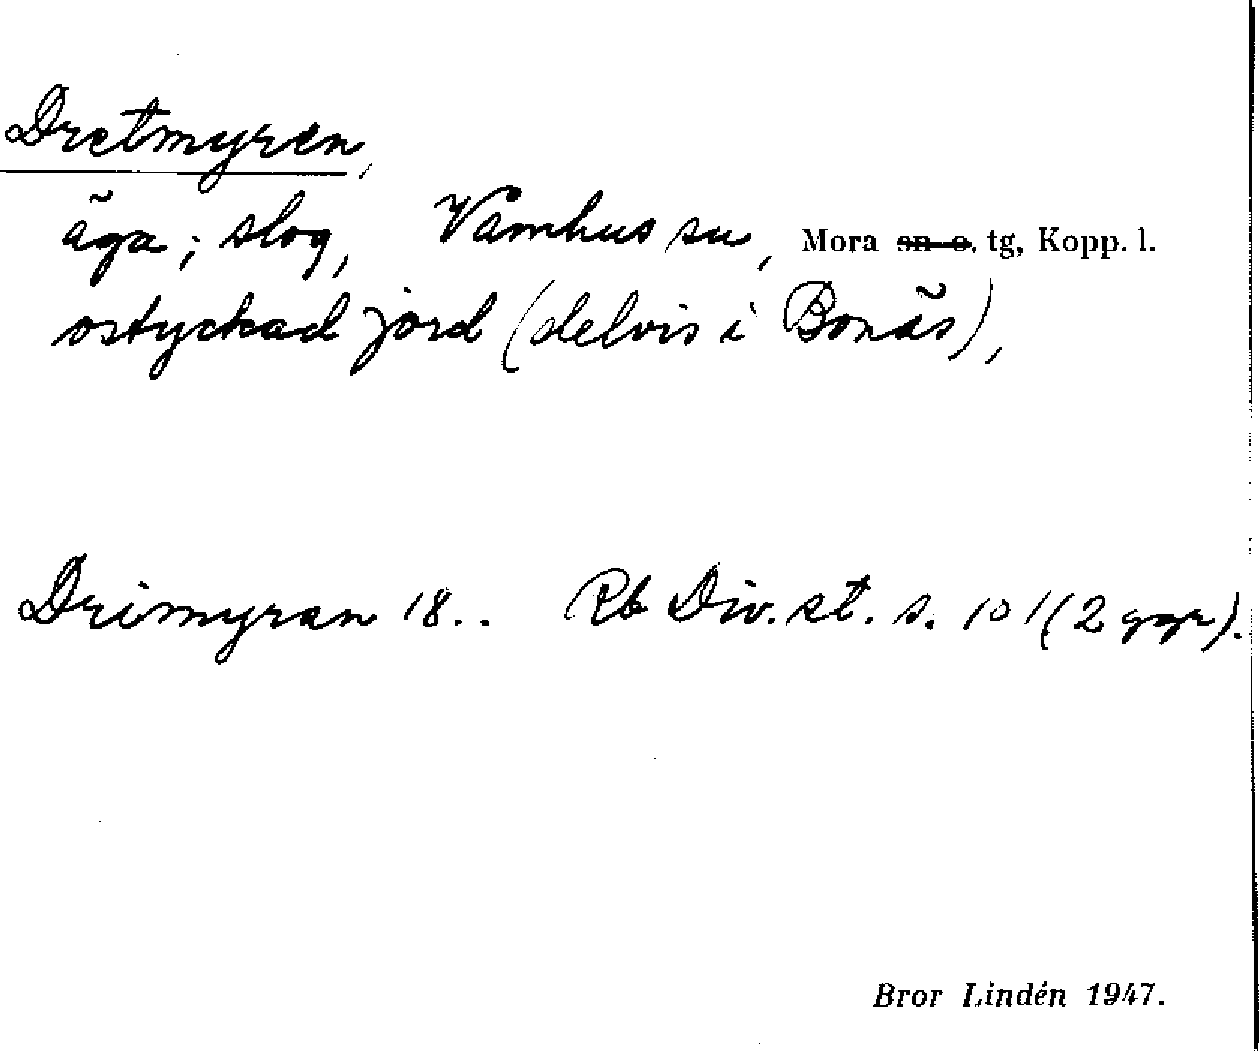 Dretmyren,
äga; slog, Våmhus sn, Mora sn o. tg, Kopp. l.
ostyckad jord (delvis i Bonäs),
Drimyran 18.. Rb Div. st. s. 101 (2 ggr).
Bror Lindén 1947.